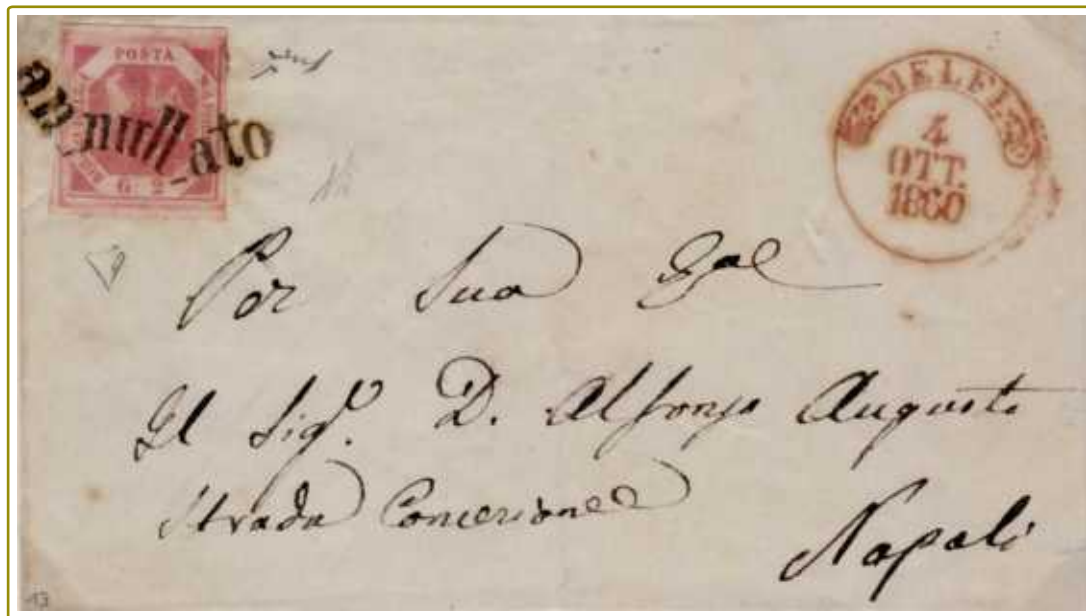 POSTA
annullato
G. 2
MELFI
4
OTT.
1860
Per Sua
Il Sigr. D. Alfonso Augusto
Strada Concezione
Napoli
13